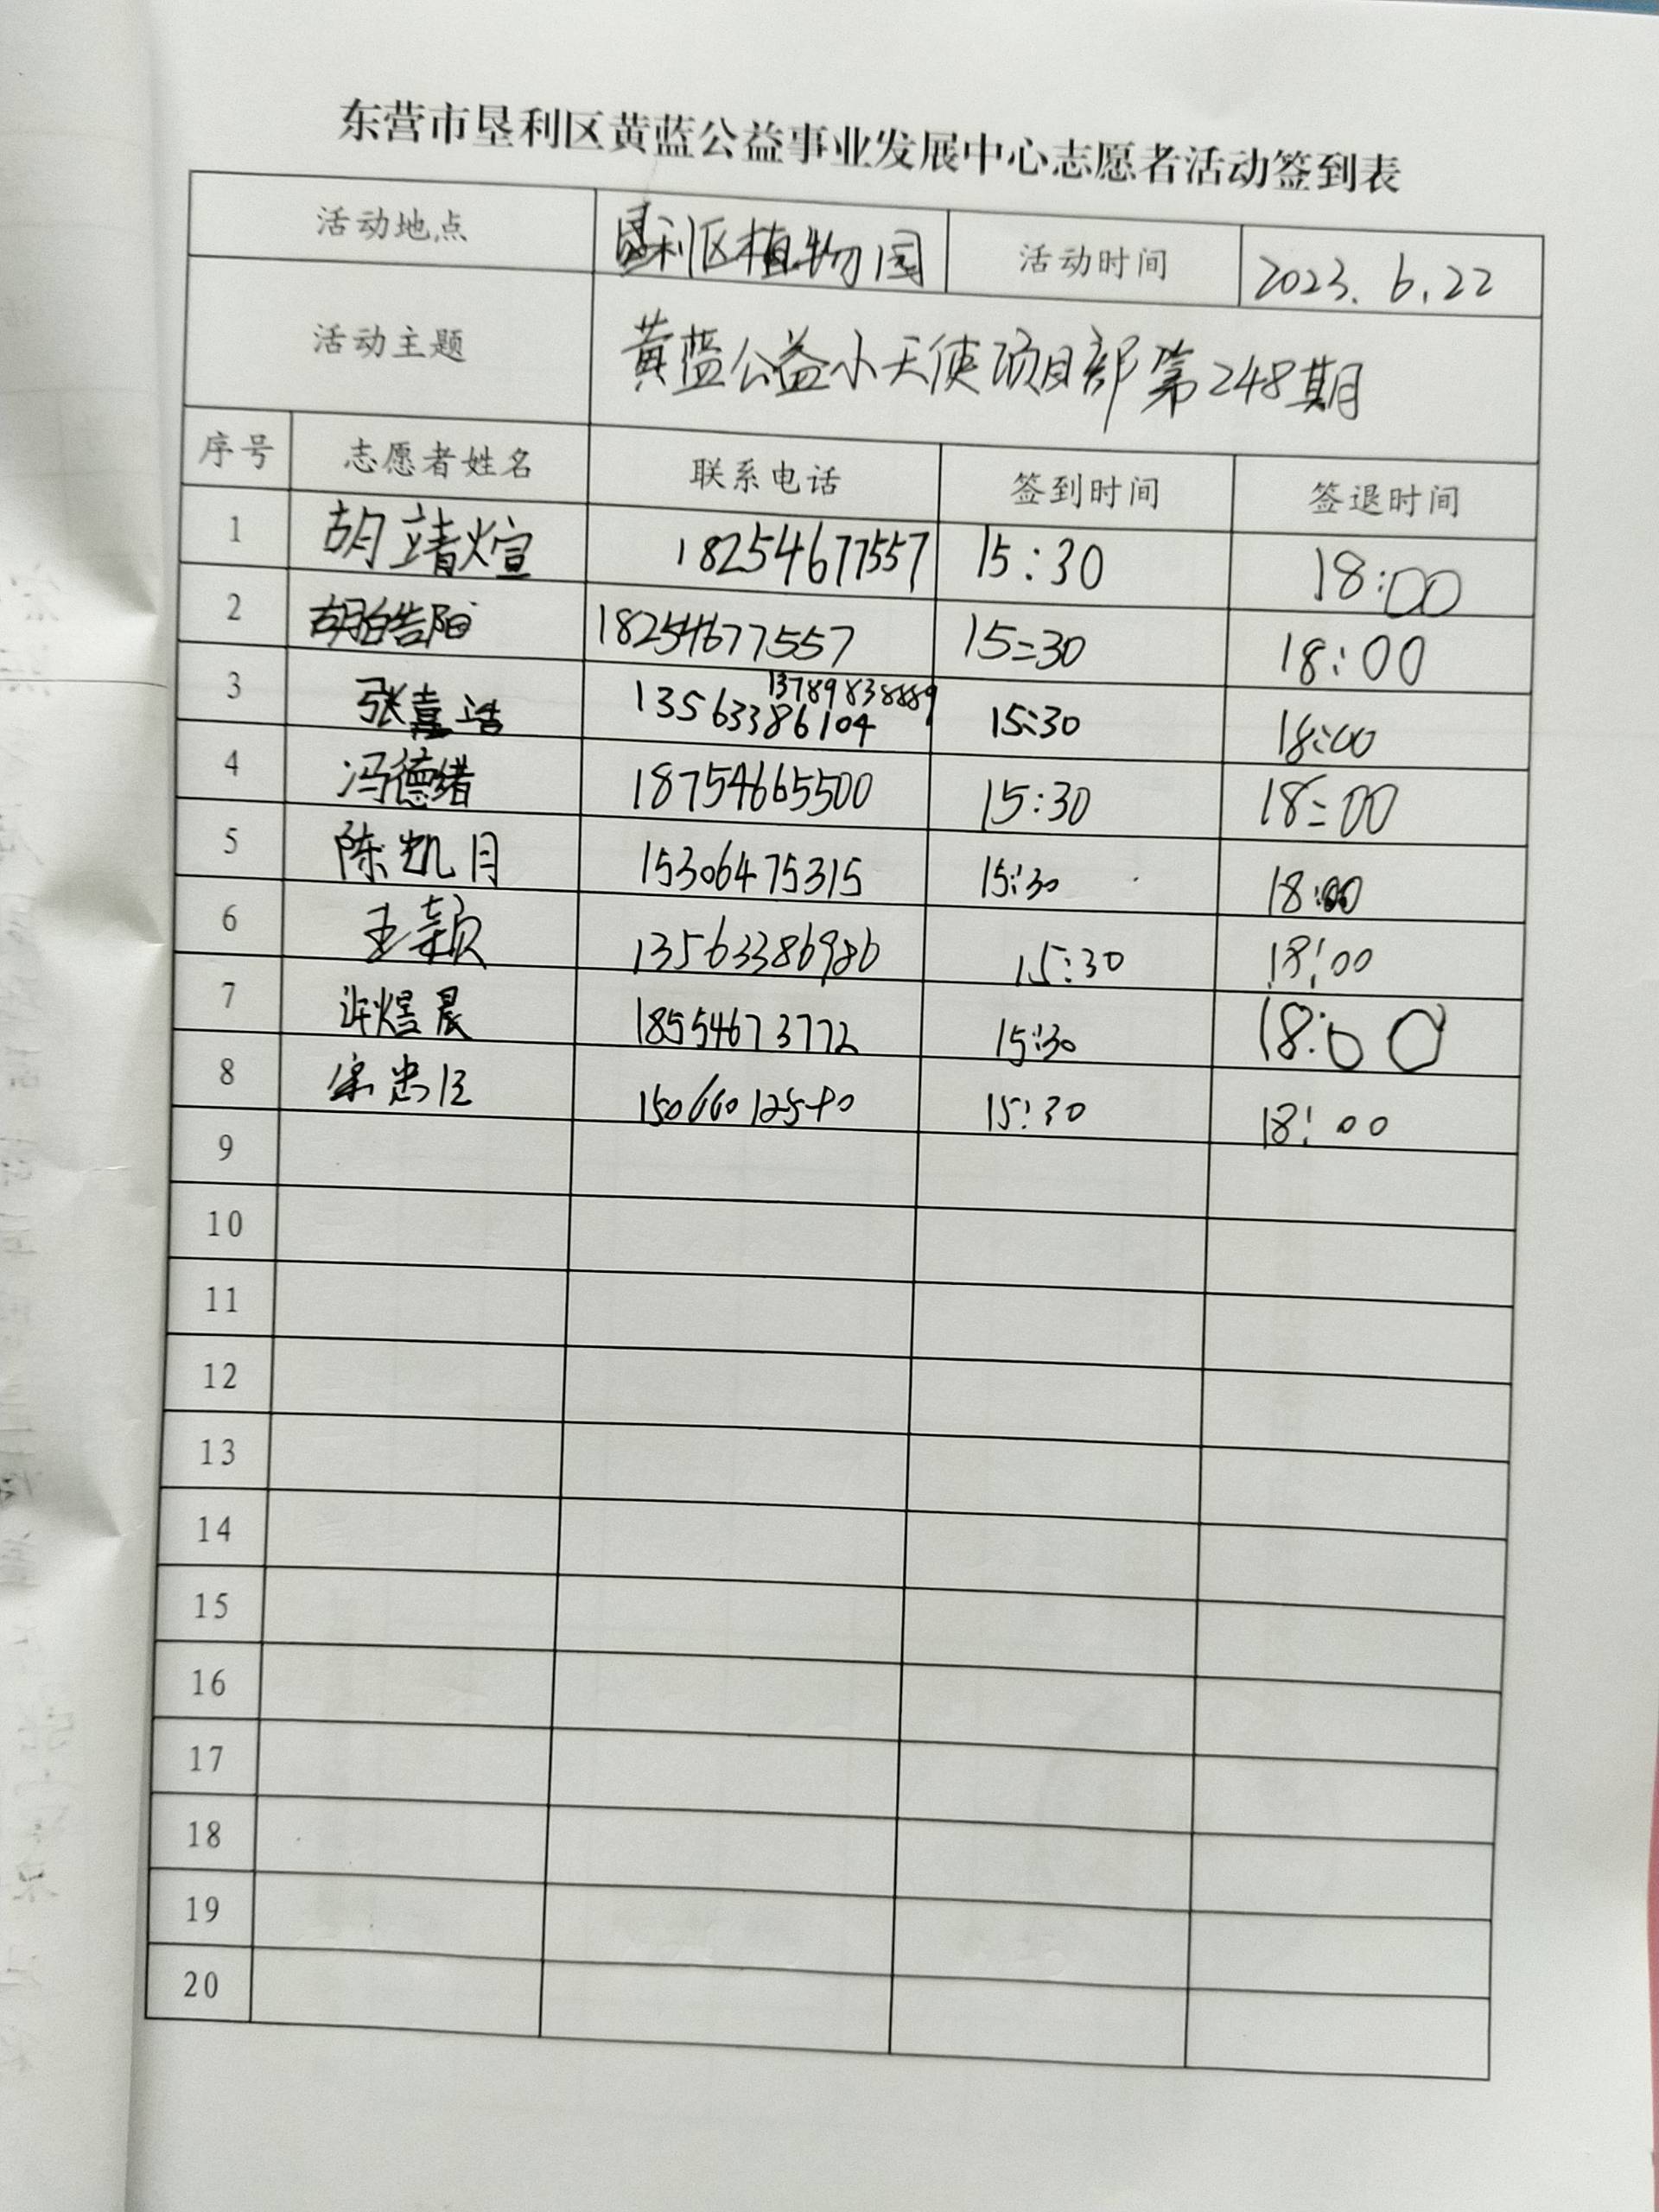 东营市垦利区黄蓝公益事业发展中心志愿者活动签到表
活动地点 垦利区植物园 活动时间 2023.6.22
活动主题 黄蓝公益小天使项目部第248期
序号 志愿者姓名 联系电话 签到时间 签退时间
1 胡靖煊 18254677557 15:30 18:00
2 胡皓阳 18254677557 15:30 18:00
3 张嘉 13789838889 13563386104 15:30 18:00
4 冯德绪 18754665500 15:30 18:00
5 陈凯月 15306475315 15:30 18:00
6 王颖 13563386986 15:30 18:00
7 许煜晨 18554673772 15:30 18:00
8 15:30 18:00
9
10
11
12
13
14
15
16
17
18
19
20